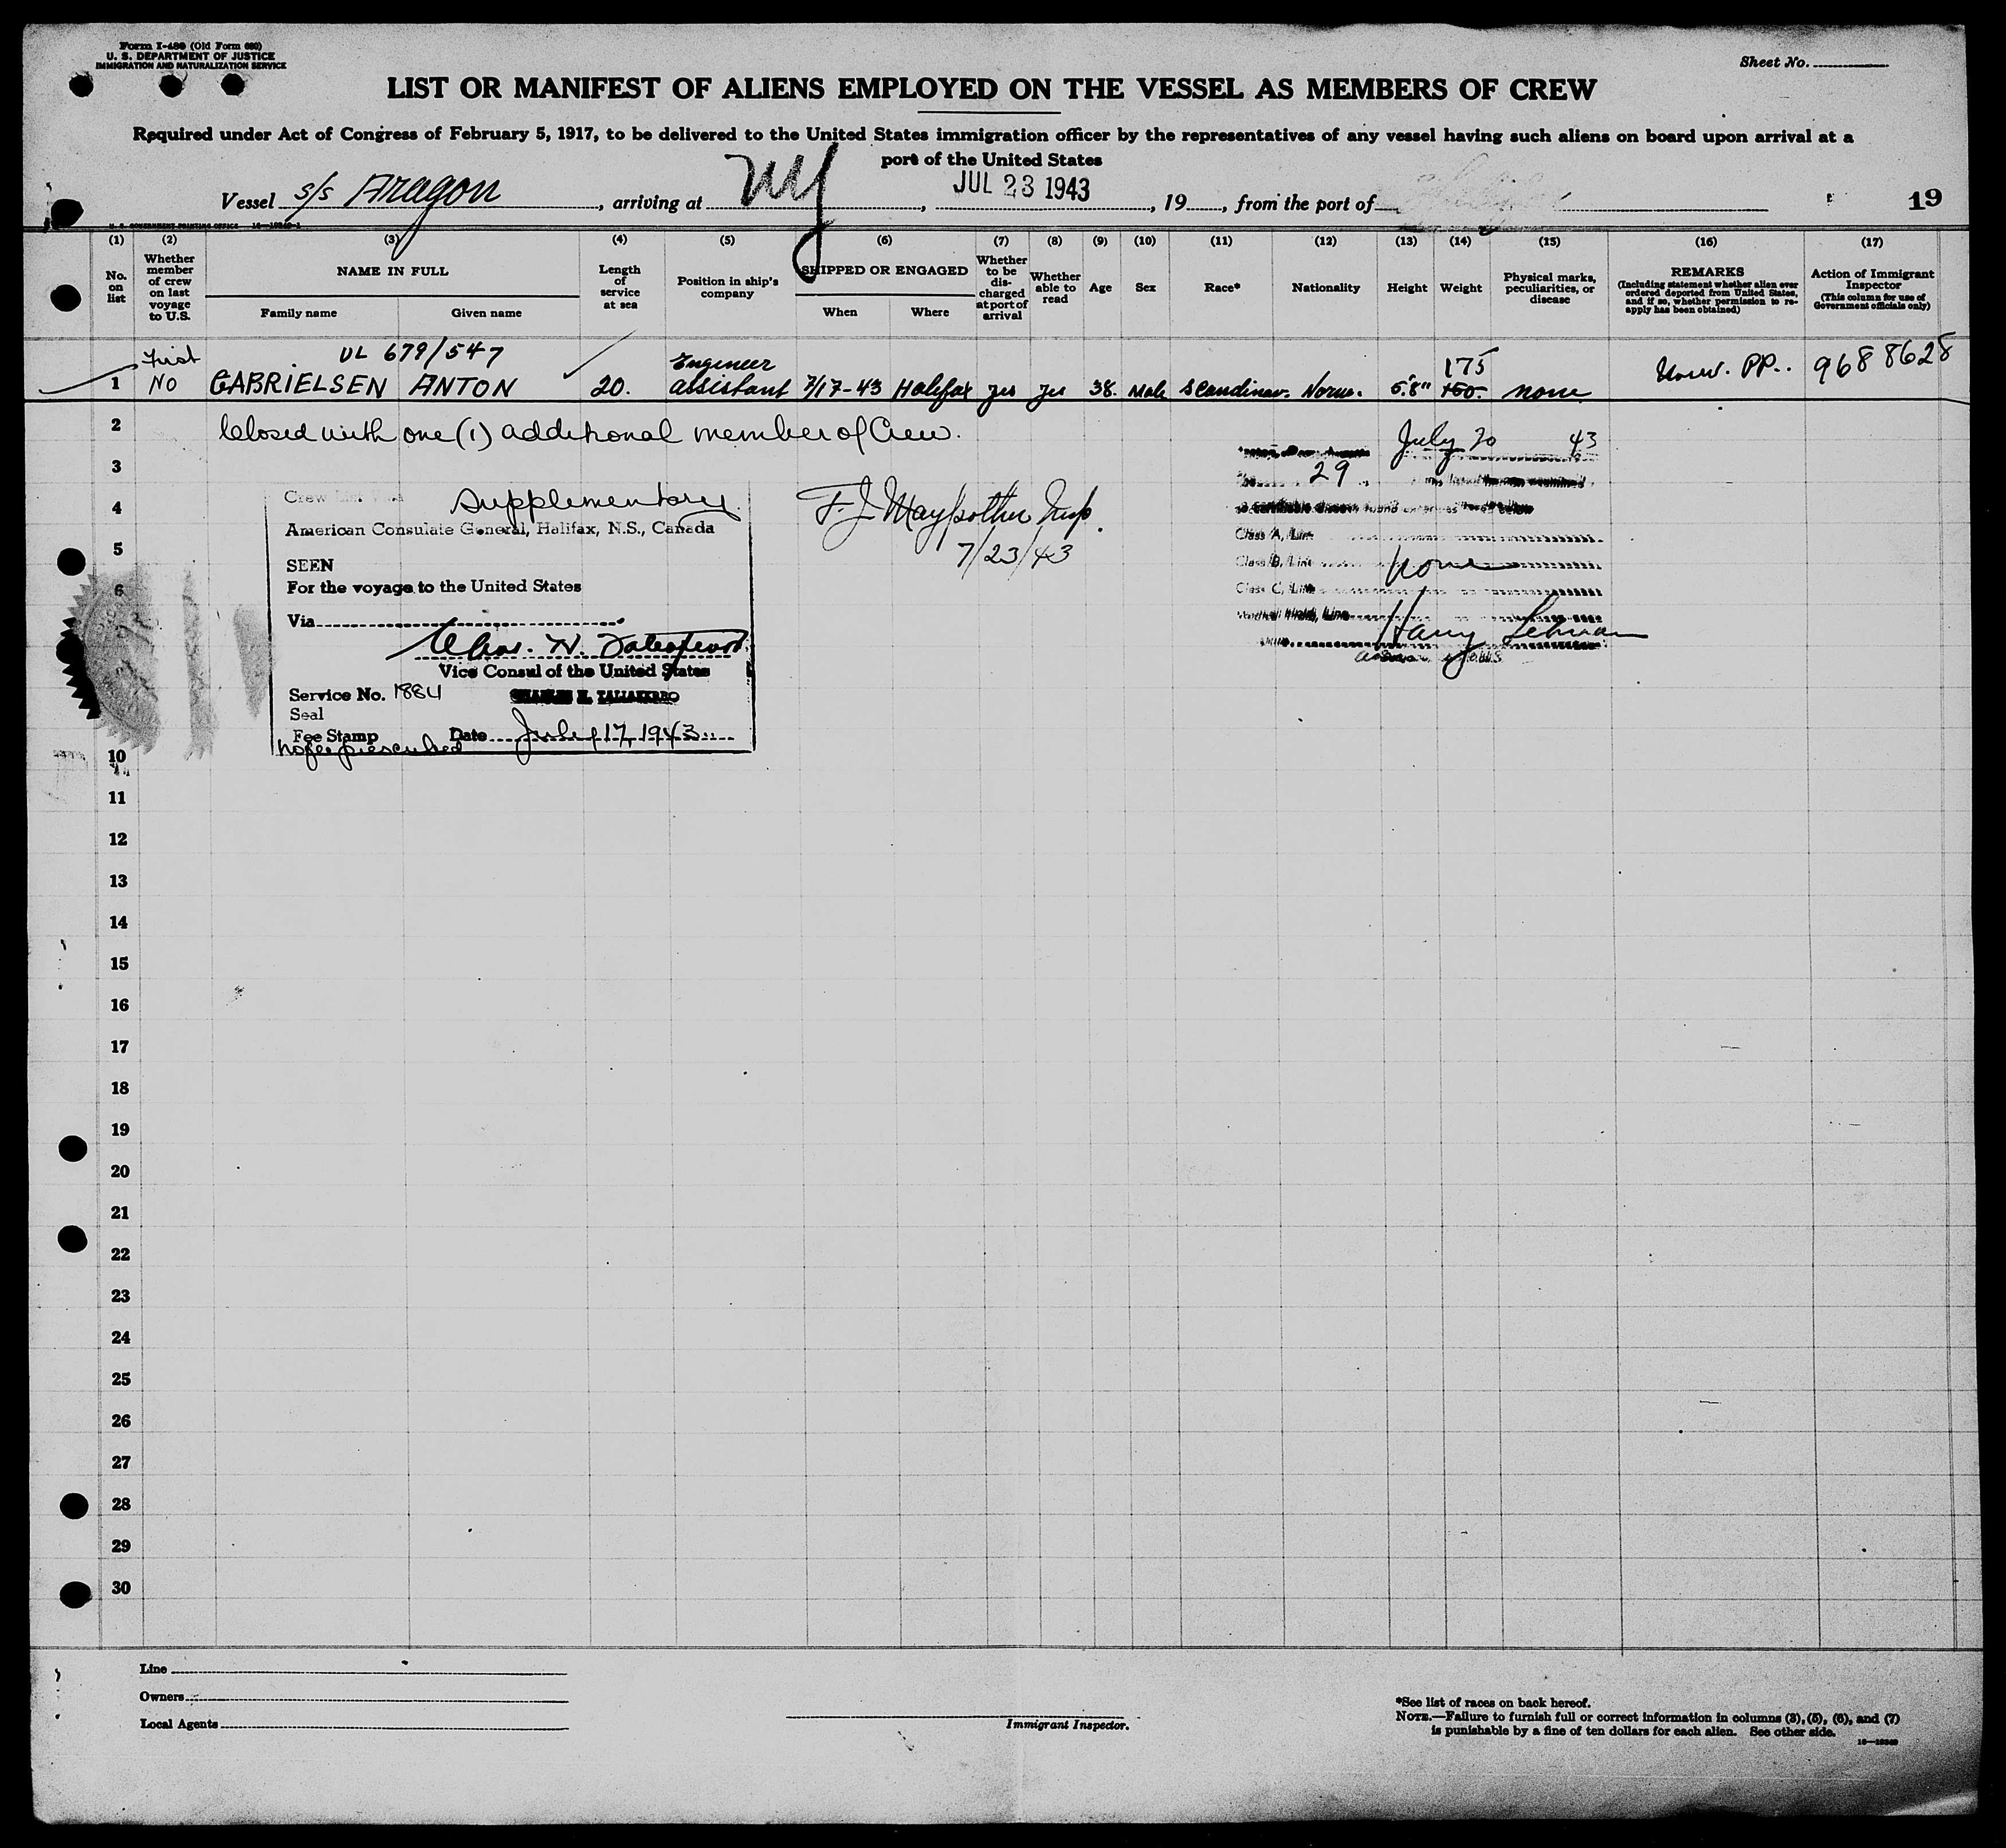 Form I-480 (Old Form 680)
U. S. DEPARTMENT OF JUSTICE
IMMIGRATION AND NATURALIZATION SERVICE
Sheet No.
LIST OR MANIFEST OF ALIENS EMPLOYED ON THE VESSEL AS MEMBERS OF CREW
Required under Act of Congress of February 5, 1917, to be delivered to the United States immigration officer by the representatives of any vessel having such aliens on board upon arrival at a
port of the United States
Vessel s/s Aragon, arriving at NY, JUL 23 1943, 19, from the port of
19
(1) (2) (3) (4) (5) (6) (7) (8) (9) (10) (11) (12) (13) (14) (15) (16) (17)
No. on list
Whether member of crew on last voyage to U.S.
NAME IN FULL
Family name Given name
Length of service at sea
Position in ship's company
SHIPPED OR ENGAGED
When Where
Whether to be discharged at port of arrival
Whether able to read
Age
Sex
Race*
Nationality
Height
Weight
Physical marks, peculiarities, or disease
REMARKS
(Including statement whether alien ever ordered deported from United States, and if so, whether permission to re-apply has been obtained)
Action of Immigrant Inspector
(This column for use of Government officials only)
First UL 679/547 Engineer 175
1 No GABRIELSEN ANTON 20. assistant 7/17-43 Halifax yes yes 38. Male Scandinav. Norw. 5'8" 160. none Norw. PP.. 9688628
2 Closed with one (1) additional member of Crew.
July 20 43
3
29
4
Crew List Visa Supplementary
American Consulate General, Halifax, N.S., Canada
5
SEEN
For the voyage to the United States
6
Via
Vice Consul of the United States
Service No. 1884 CHARLES H. TALIAFERRO
Seal
Fee Stamp Date July 17, 1943
No fee prescribed
F. J. Maypother Insp.
7/23/43
Class A, Line
Class B, Line none
Class C, Line
Harry Lehman
10
11
12
13
14
15
16
17
18
19
20
21
22
23
24
25
26
27
28
29
30
Line
Owners
Local Agents
Immigrant Inspector.
*See list of races on back hereof.
NOTE.—Failure to furnish full or correct information in columns (3), (5), (6), and (7)
is punishable by a fine of ten dollars for each alien. See other side.